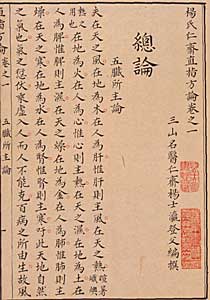 楊氏仁齋直指方論卷之一
三山名醫仁齋楊士瀛登父編撰
總論
五臟所主論
夫在天為風在地為木在人為肝惟肝則主風在天為熱
在地為火在人為心惟心則主熱在天為濕在地為土在
人為脾惟脾則主濕在天為燥在地為金在人為肺惟肺則主
燥在天為寒在地為水在人為腎惟腎則主寒吁此天地自然
之氣也氣之愆伏人而人不能免百病之所由生故風
直指方論卷之一 五臟所主論